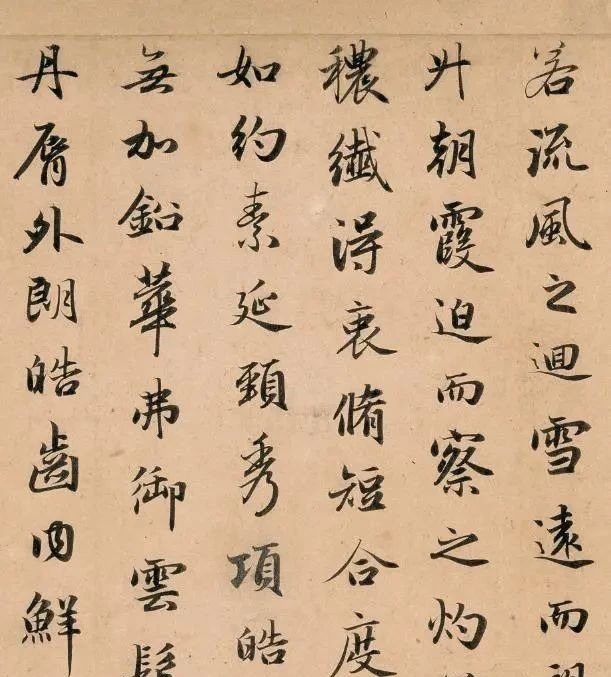 若流風之迴雪遠而
升朝霞迫而察之灼
穠纖淂衷脩短合度
如約素延頸秀項皓
無加鉛華弗御雲髻
丹脣外朗皓齒内鮮